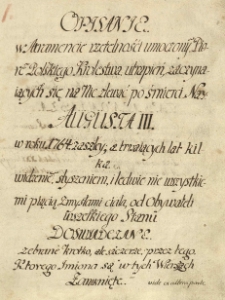 OPISANIE.
w Atramencie rzetelności umoczony Pió-
rem Polskiego Krolestwa utrapień, zaczyna-
iących się na Nieszlawę po śmierci Nay:
AUGUSTA III.
w roku 1764. zaszłey, a trwaiących lat kil-
ka.
widzenie, słyszeniem, i ledwie nie wszystkie-
mi pięcią zmysłami ciała, od Obywateli
wszelkiego Stanu
DOSWIADCZANE.
zebrane krotko, ale szczerze, przez tego
Ktorego Imiona są w tych Wierszach
Zamknięte.